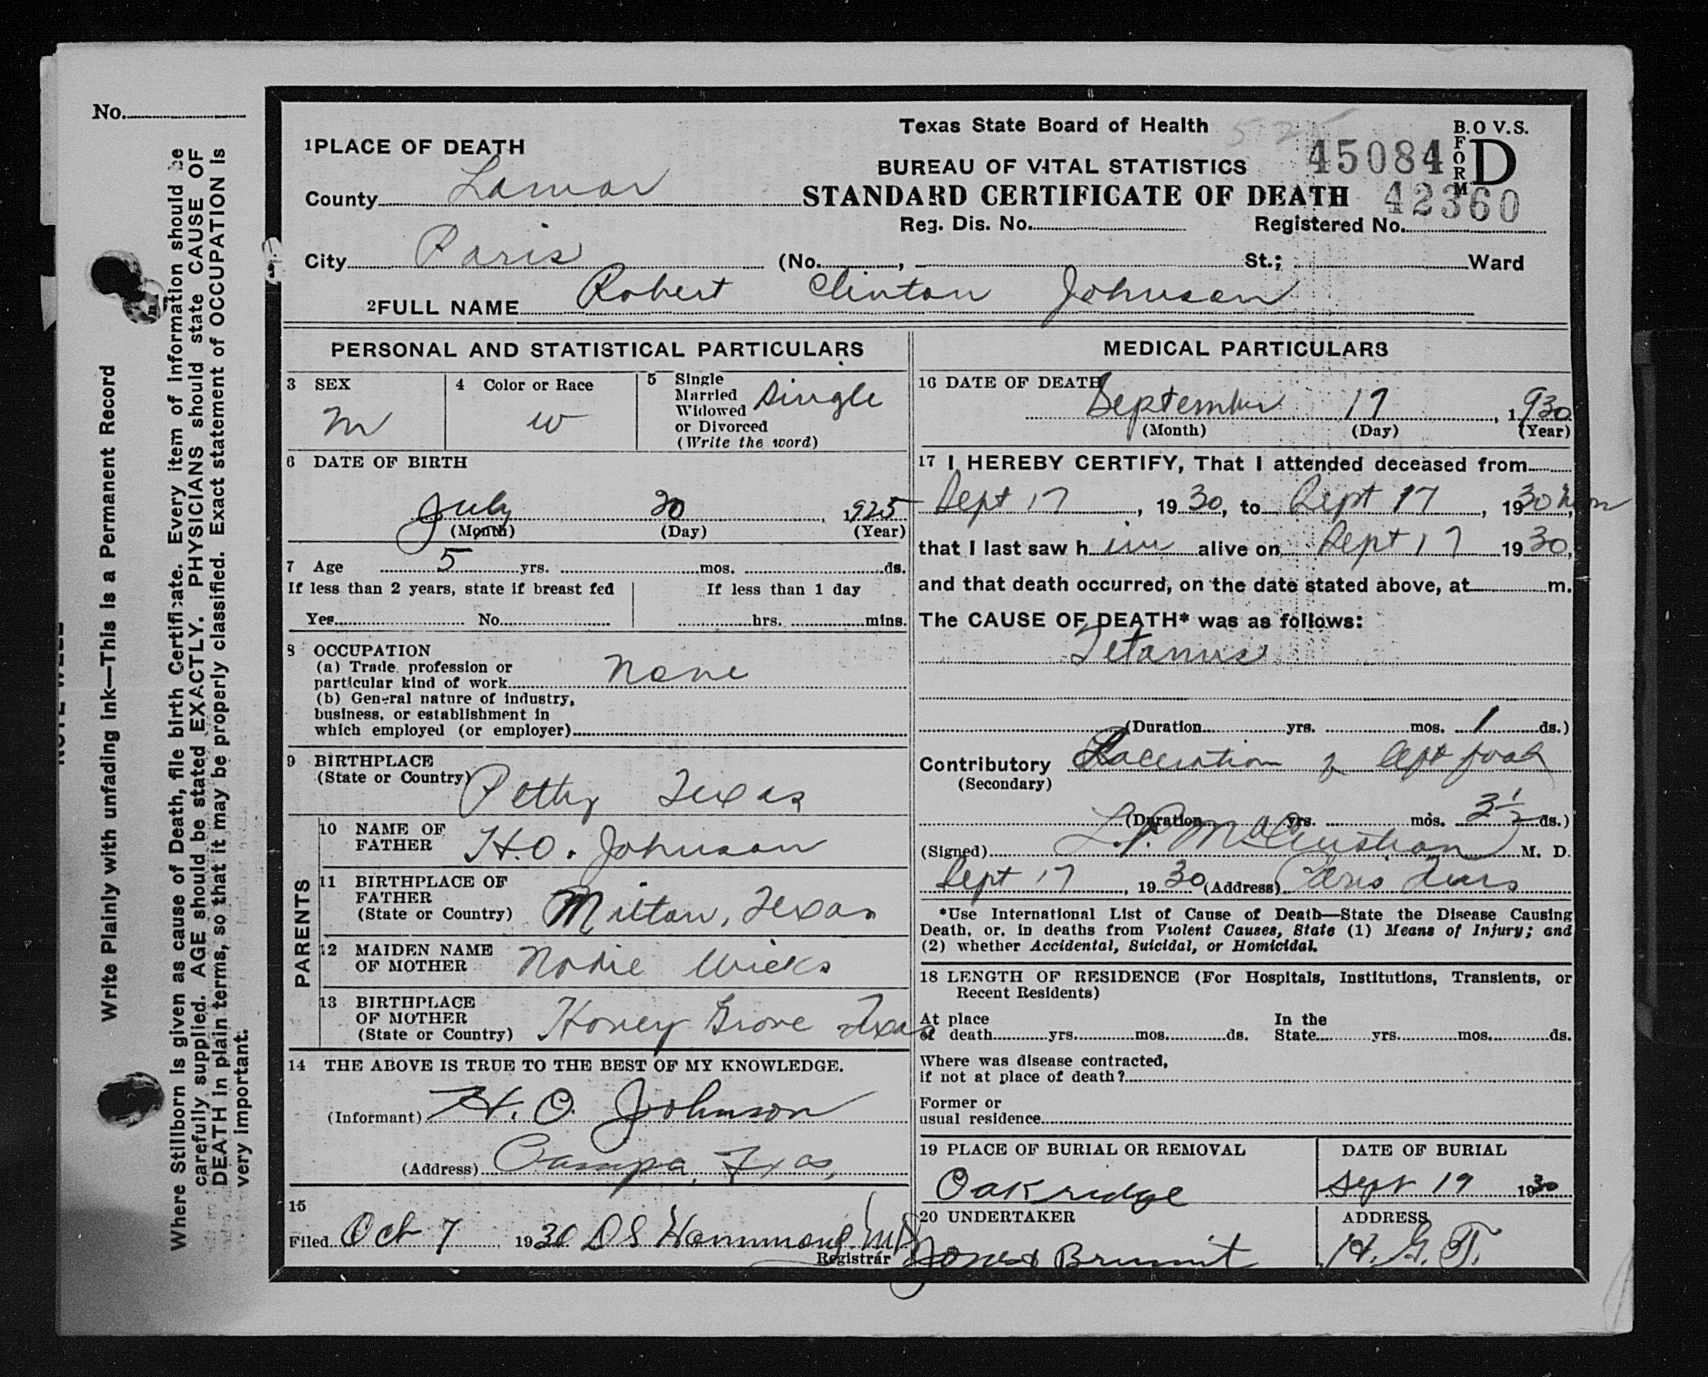 No.
Write Plainly with unfading ink—This is a Permanent Record
Where Stillborn is given as cause of Death, file birth Certificate. Every item of information should be
carefully supplied. AGE should be stated EXACTLY. PHYSICIANS should state CAUSE OF
DEATH in plain terms, so that it may be properly classified. Exact statement of OCCUPATION is
very important.
1 PLACE OF DEATH
Texas State Board of Health
B.O V.S.
FORM D
BUREAU OF VITAL STATISTICS
45084
County Lamar
STANDARD CERTIFICATE OF DEATH
42360
Reg. Dis. No. Registered No.
City Paris (No. , St.; Ward
2 FULL NAME Robert Clinton Johnson
PERSONAL AND STATISTICAL PARTICULARS
3 SEX
M
4 Color or Race
W
5 Single
Married
Widowed
or Divorced
(Write the word)
Single
6 DATE OF BIRTH
July 20, 1925
(Month) (Day) (Year)
7 Age 5 yrs. mos. ds.
If less than 2 years, state if breast fed
Yes No
If less than 1 day
hrs. mins.
8 OCCUPATION
(a) Trade, profession or
particular kind of work None
(b) General nature of industry,
business, or establishment in
which employed (or employer)
9 BIRTHPLACE
(State or Country) Petty Texas
PARENTS
10 NAME OF
FATHER H.O. Johnson
11 BIRTHPLACE OF
FATHER
(State or Country) Milton, Texas
12 MAIDEN NAME
OF MOTHER Nodie Wicks
13 BIRTHPLACE
OF MOTHER
(State or Country) Honey Grove Texas
14 THE ABOVE IS TRUE TO THE BEST OF MY KNOWLEDGE.
(Informant) H. O. Johnson
(Address) Pampa, Texas,
15
Filed Oct 7 1930 D S Hammond MD
Registrar
MEDICAL PARTICULARS
16 DATE OF DEATH
September 17, 1930
(Month) (Day) (Year)
17 I HEREBY CERTIFY, That I attended deceased from
Sept 17, 1930, to Sept 17, 1930,
that I last saw him alive on Sept 17 1930,
and that death occurred, on the date stated above, at m.
The CAUSE OF DEATH* was as follows:
Tetanus
(Duration yrs. mos. 1 ds.)
Contributory Laceration of left foot
(Secondary)
(Duration yrs. mos. 3½ ds.)
(Signed) L.P. McCuistion M. D.
Sept 17, 1930 (Address) Paris Texas
*Use International List of Cause of Death—State the Disease Causing
Death, or, in deaths from Violent Causes, State (1) Means of Injury; and
(2) whether Accidental, Suicidal, or Homicidal.
18 LENGTH OF RESIDENCE (For Hospitals, Institutions, Transients, or
Recent Residents)
At place
of death yrs. mos. ds.
In the
State yrs. mos. ds.
Where was disease contracted,
if not at place of death?
Former or
usual residence
19 PLACE OF BURIAL OR REMOVAL
Oakridge
DATE OF BURIAL
Sept 19 1930
20 UNDERTAKER
Jones &
ADDRESS
H. G. T.